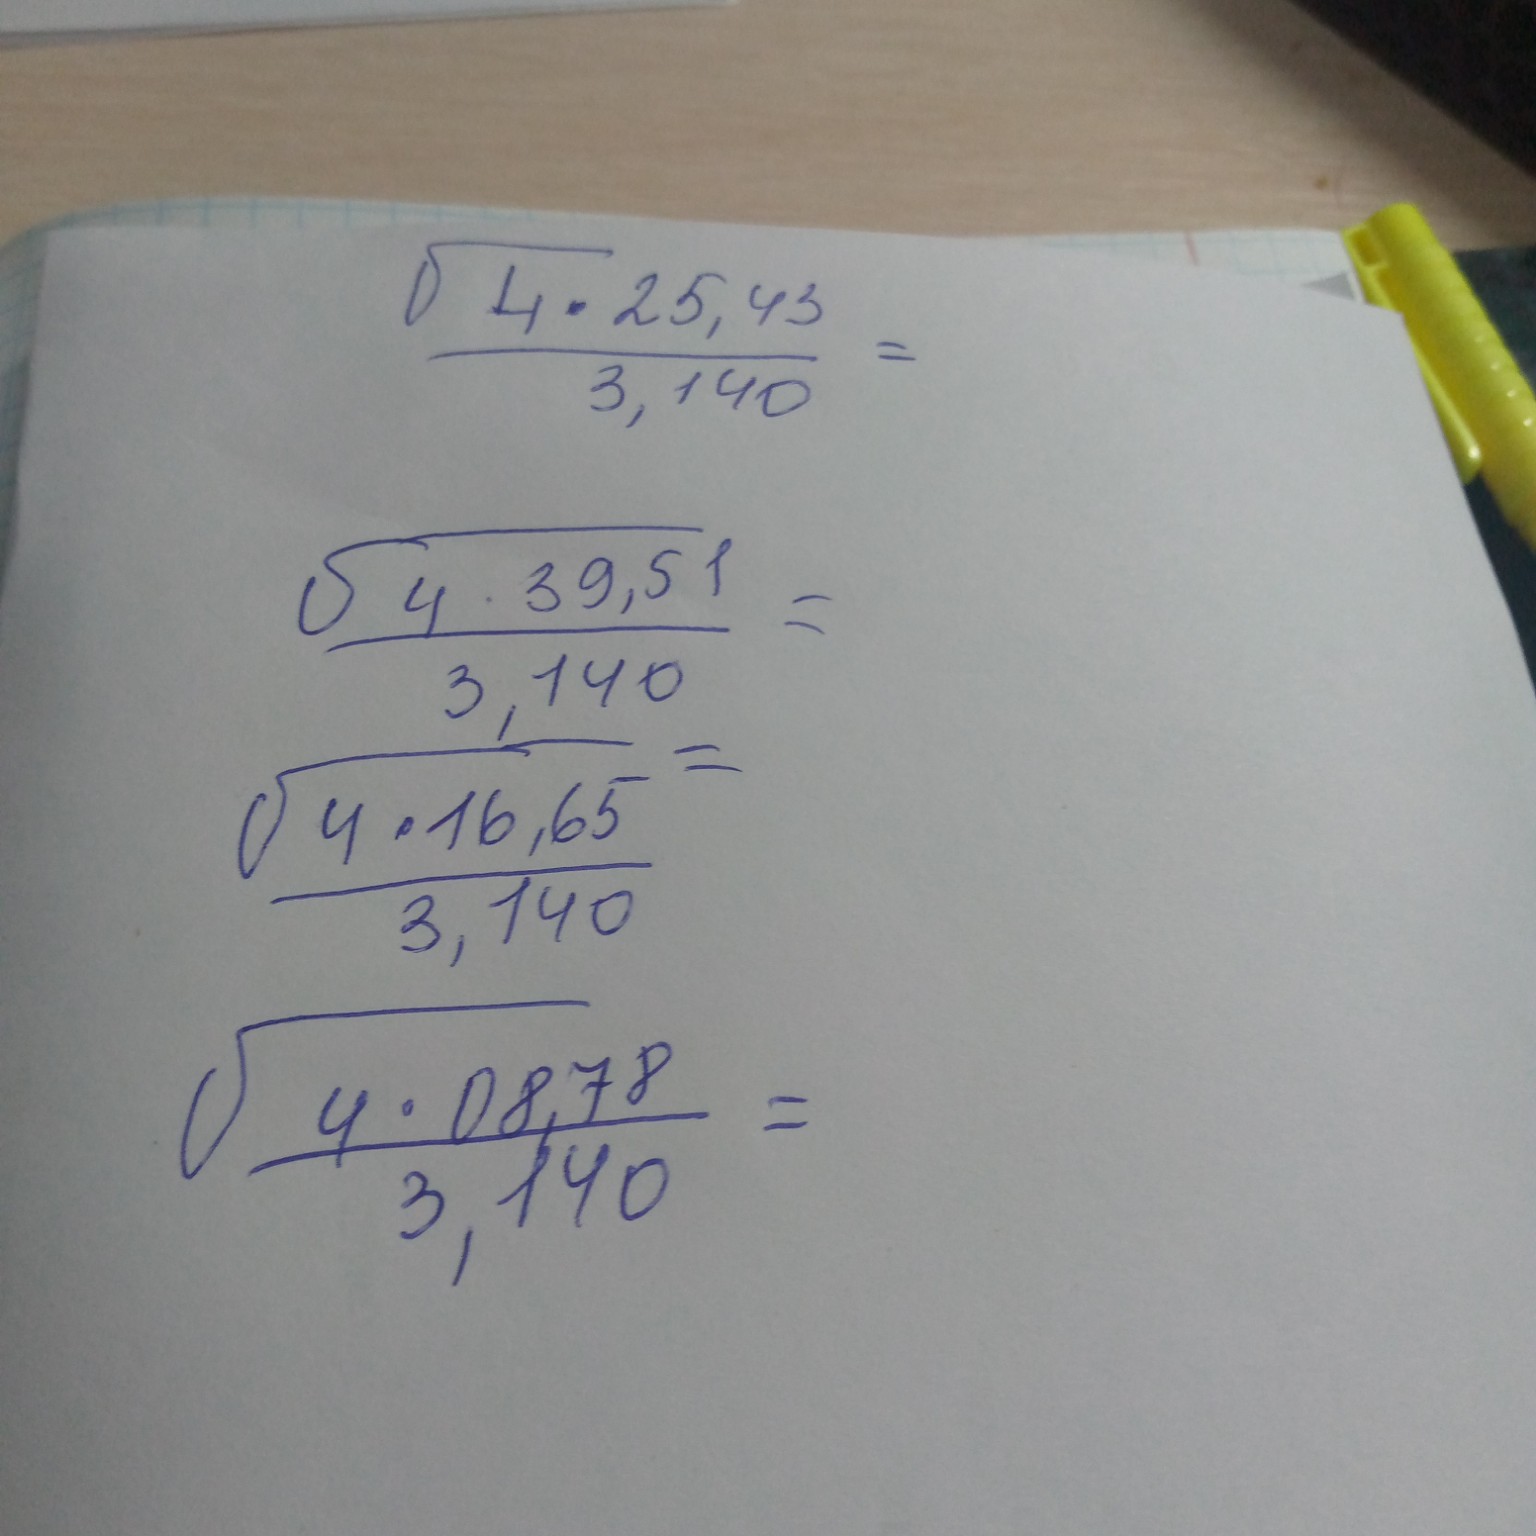 √4·25,43
3,140 =
√4·39,51 =
3,140
√4·16,65 =
3,140
√4·08,78 =
3,140